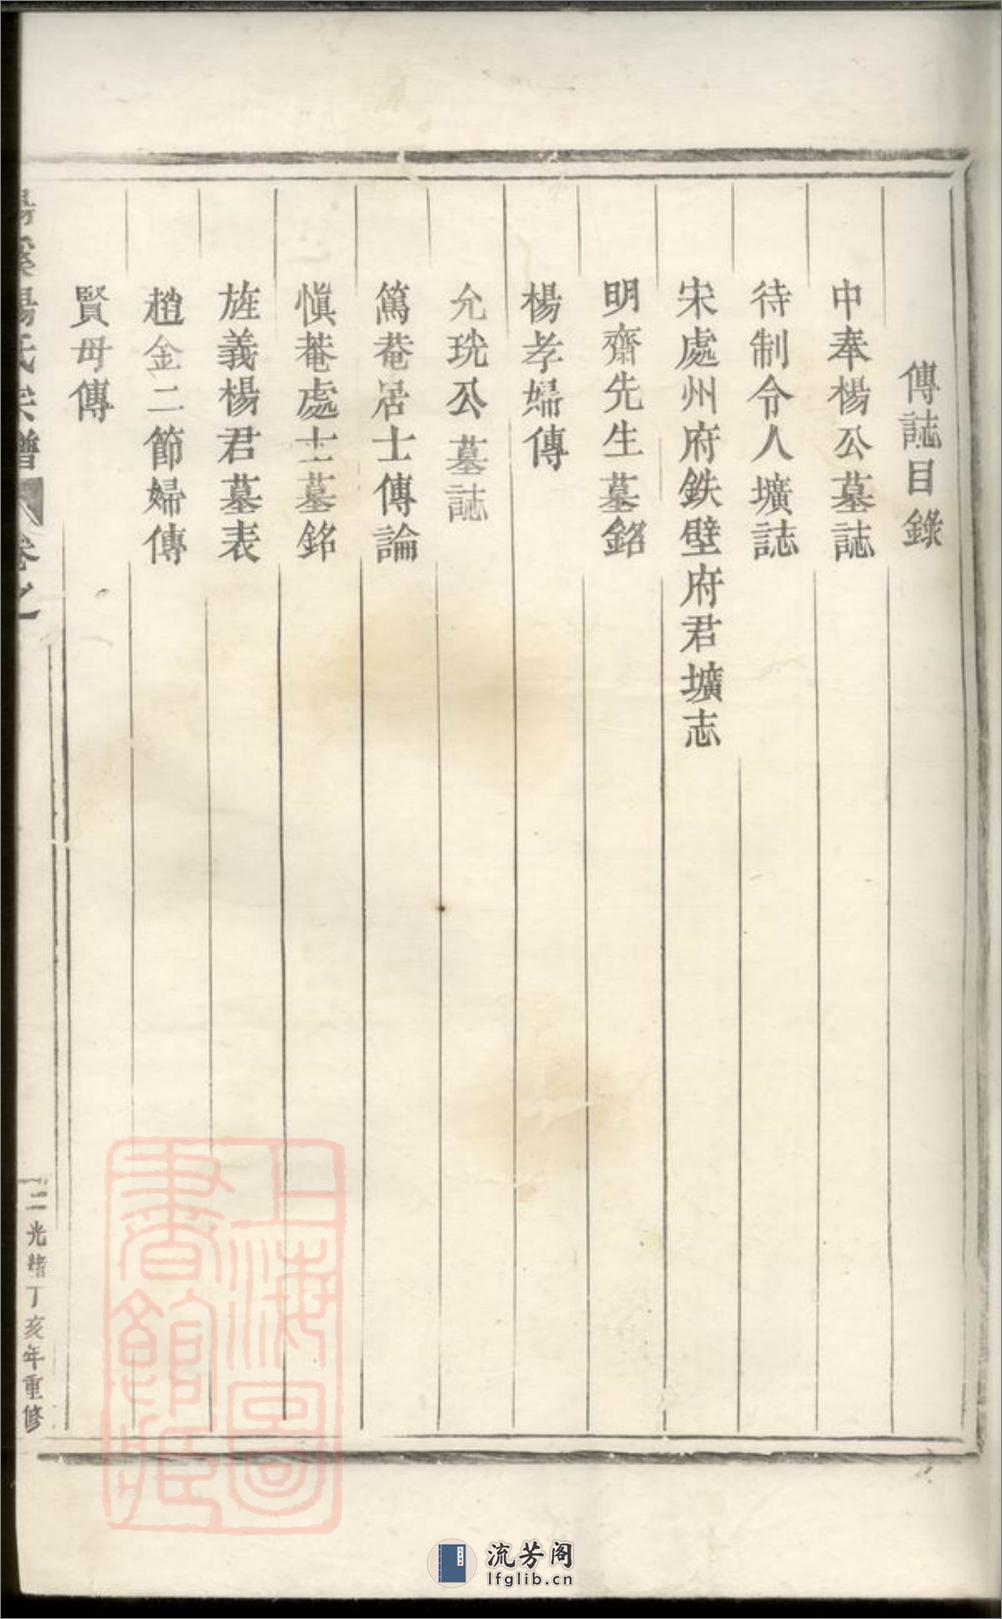 傳誌目錄
中奉楊公墓誌
待制令人壙誌
宋處州府鉄壁府君壙志
明齋先生墓銘
楊孝婦傳
允珖公墓誌
篤菴居士傳論
慎菴處士墓銘
旌義楊君墓表
趙金二節婦傳
賢母傳
楊氏宗譜 卷之
二 光緒丁亥年重修
上海圖書館藏
流芳阁
lfglib.cn